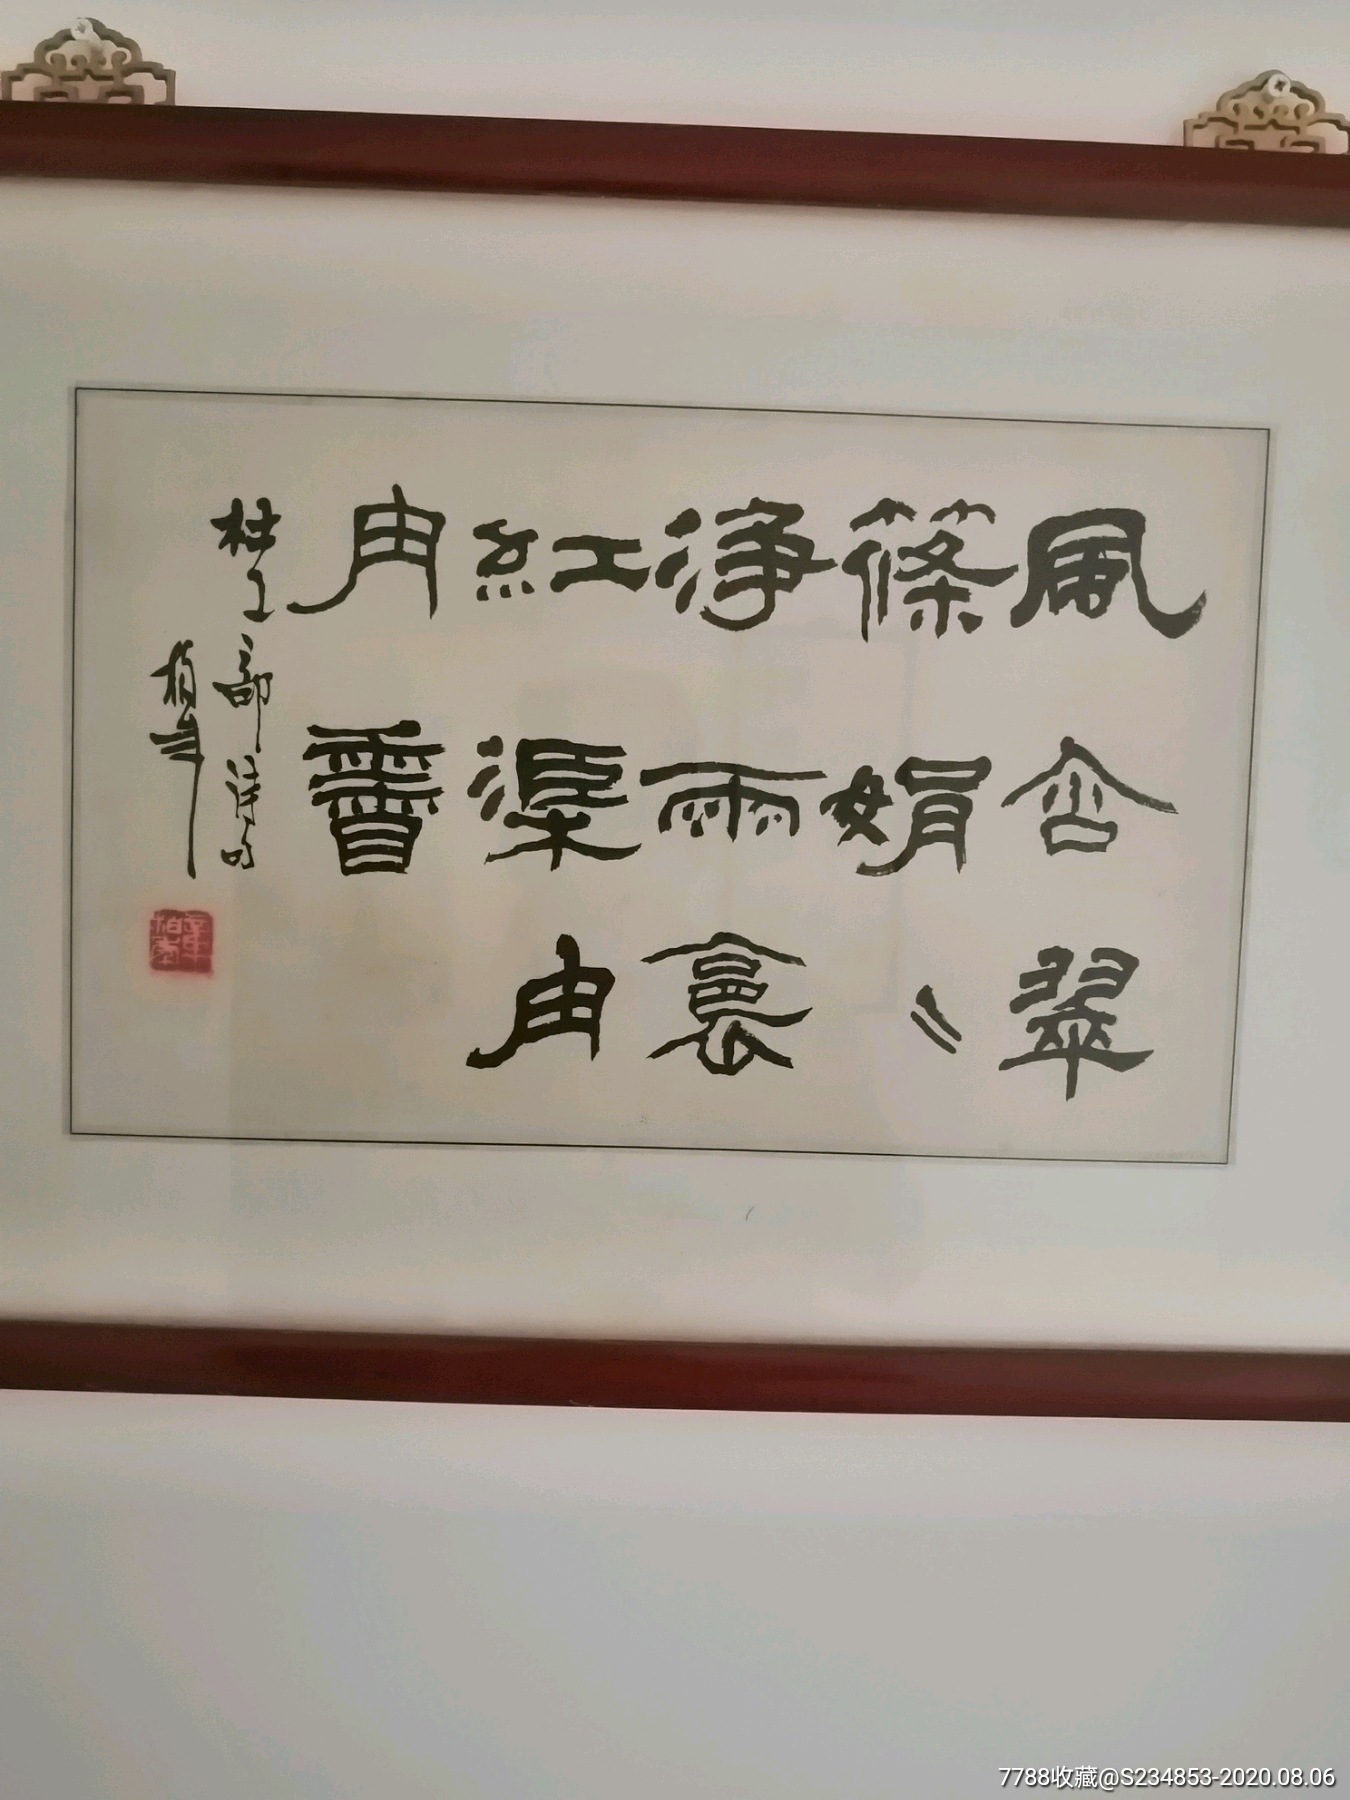 風含翠
篠娟〻
淨雨裛
紅渠冉
冉香
杜工部詩句
柏年
7788收藏@S234853-2020.08.06